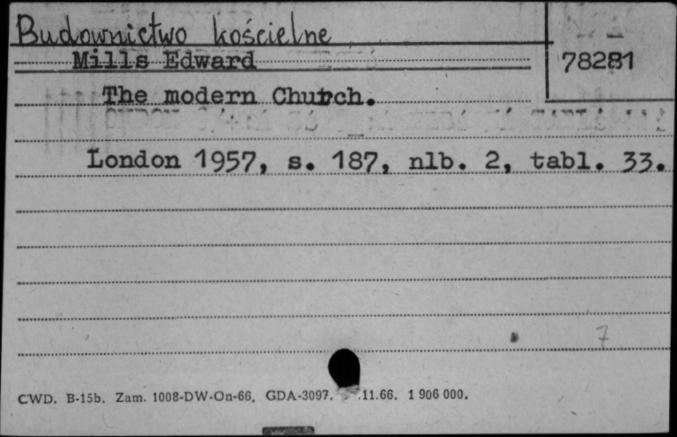 Budownictwo kościelne
Mills Edward
78281
The modern Church.
London 1957, s. 187, nlb. 2, tabl. 33.
7
CWD. B-15b. Zam. 1008-DW-On-66. GDA-3097. .11.66. 1 906 000.